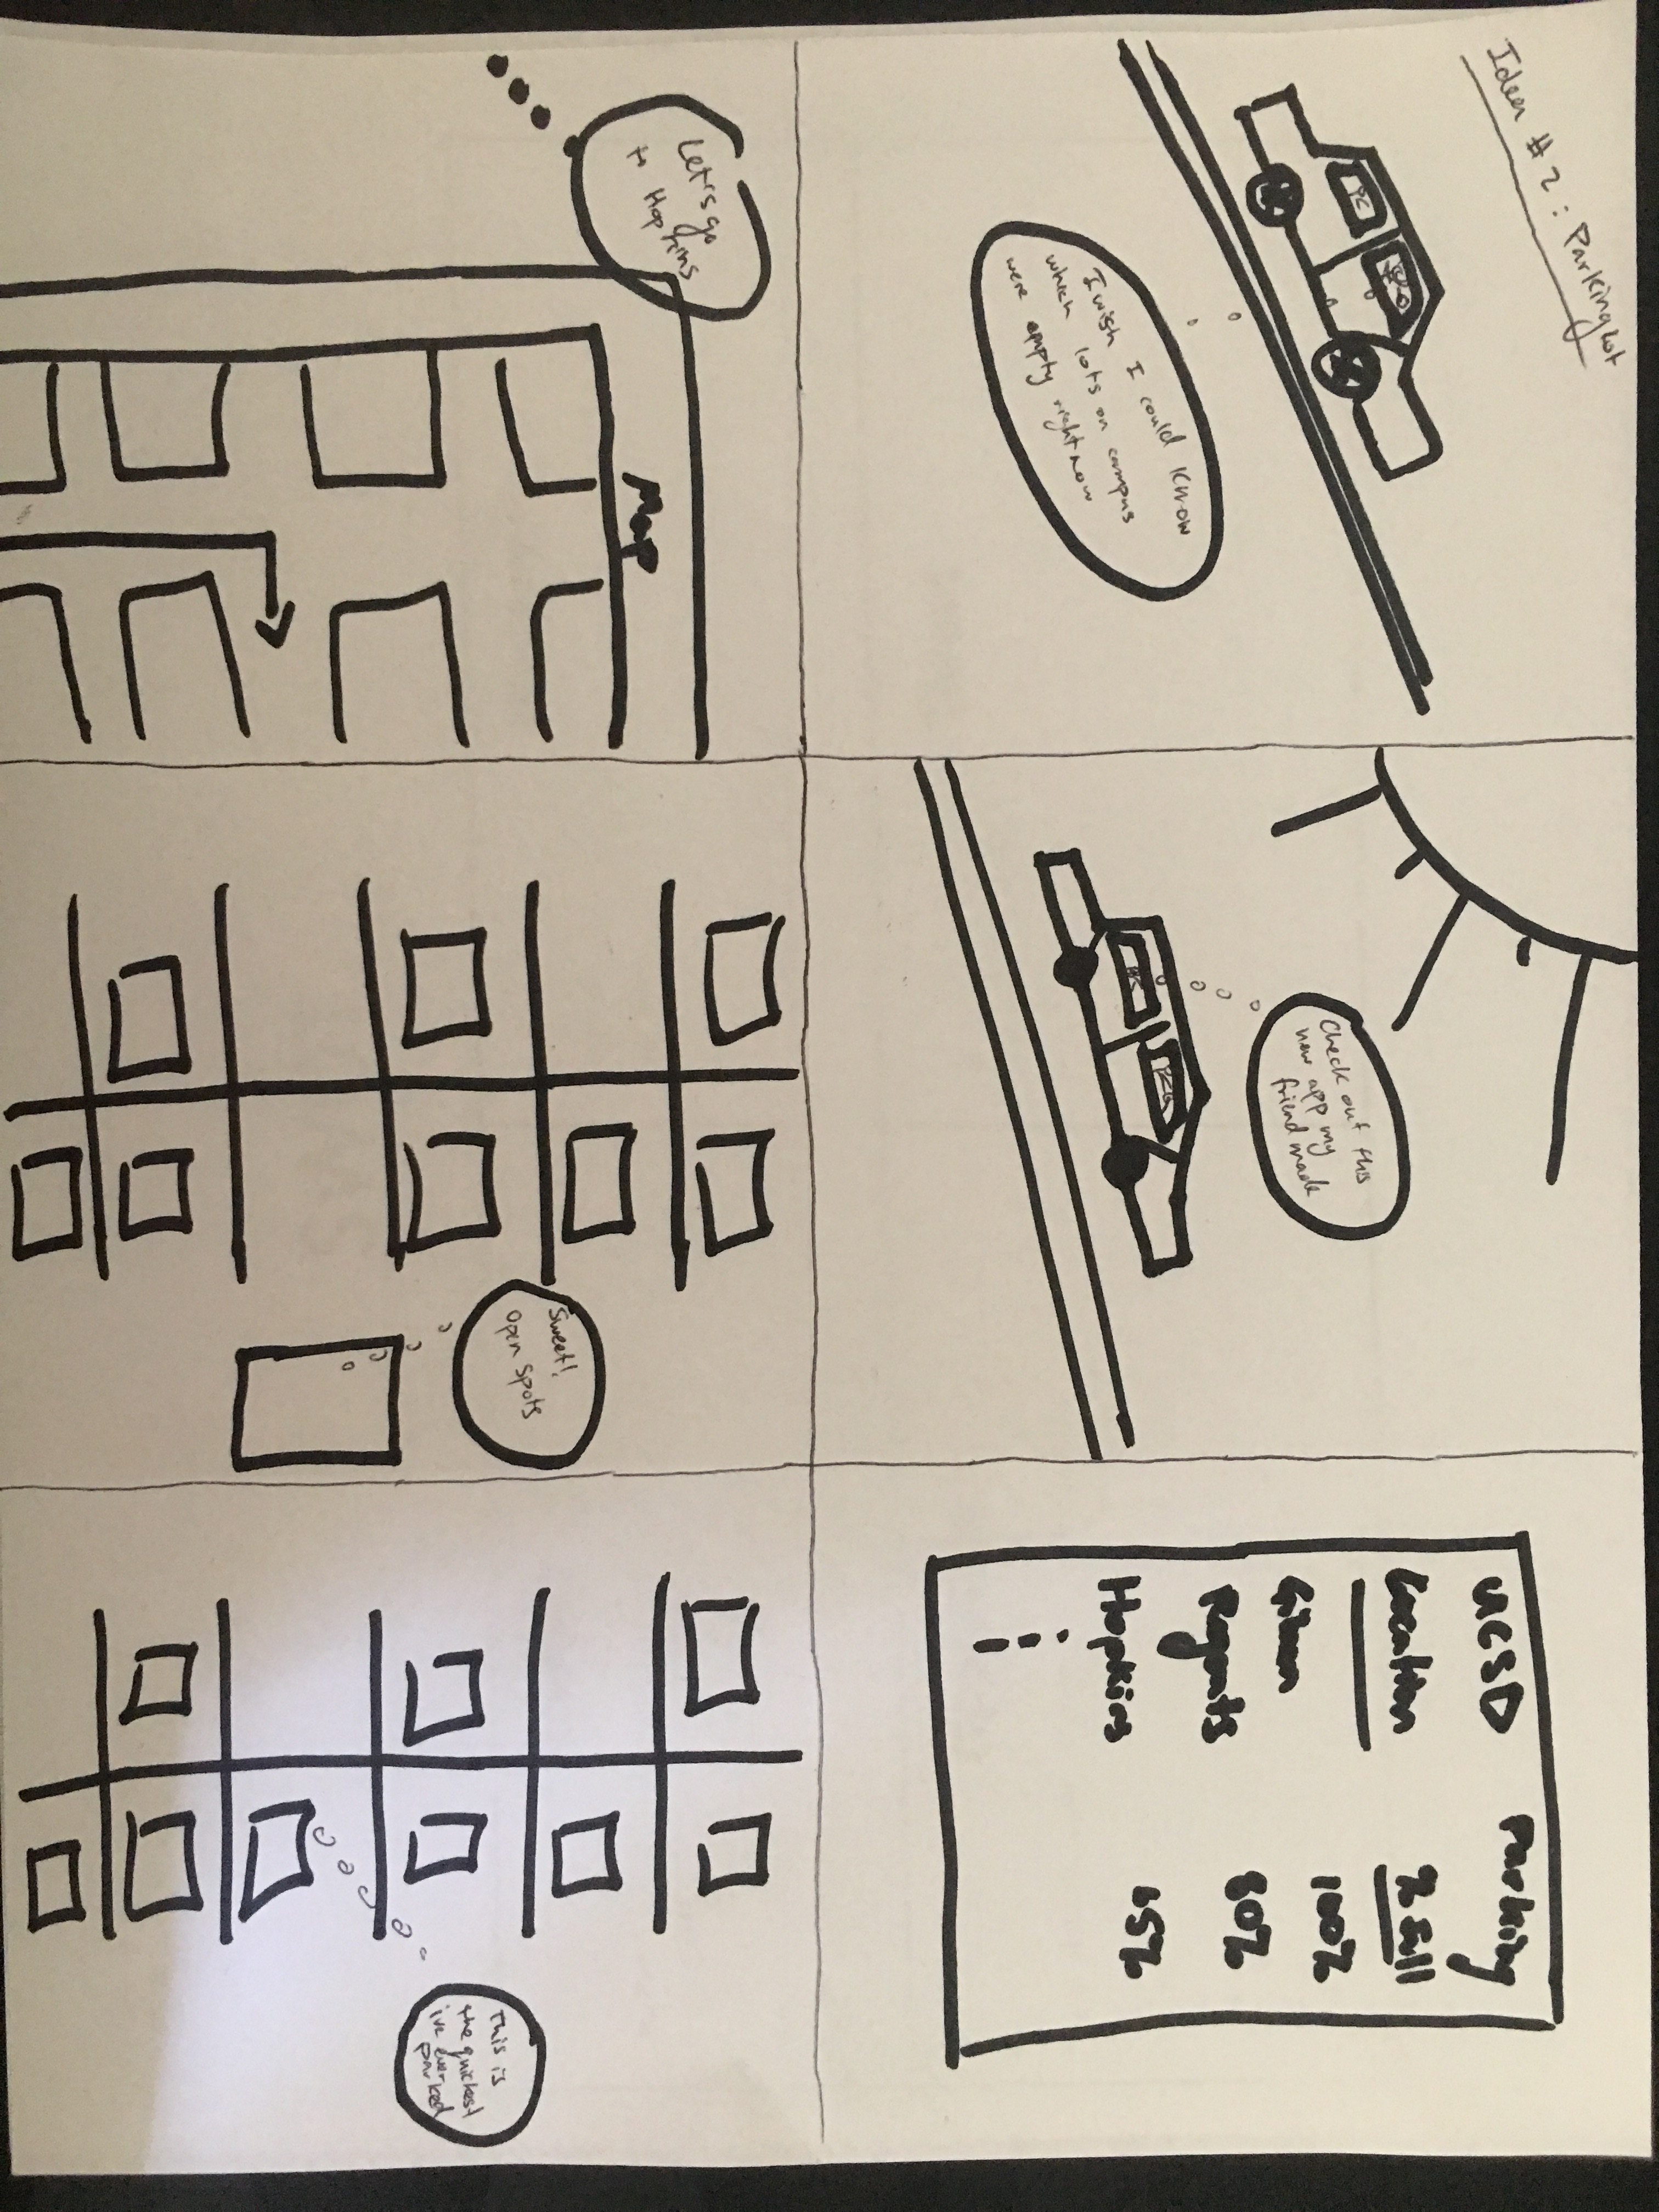 Idea #2: Parking Lot
I wish I could know
which lots on campus
were empty right now
Check out this
new app my
friend made
UCSD Parking
Location % full
Gilman 100%
Regents 80%
Hopkins 65%
Let's go
to Hopkins
Map
Sweet!
Open spots
This is
the quickest
ive ever
parked